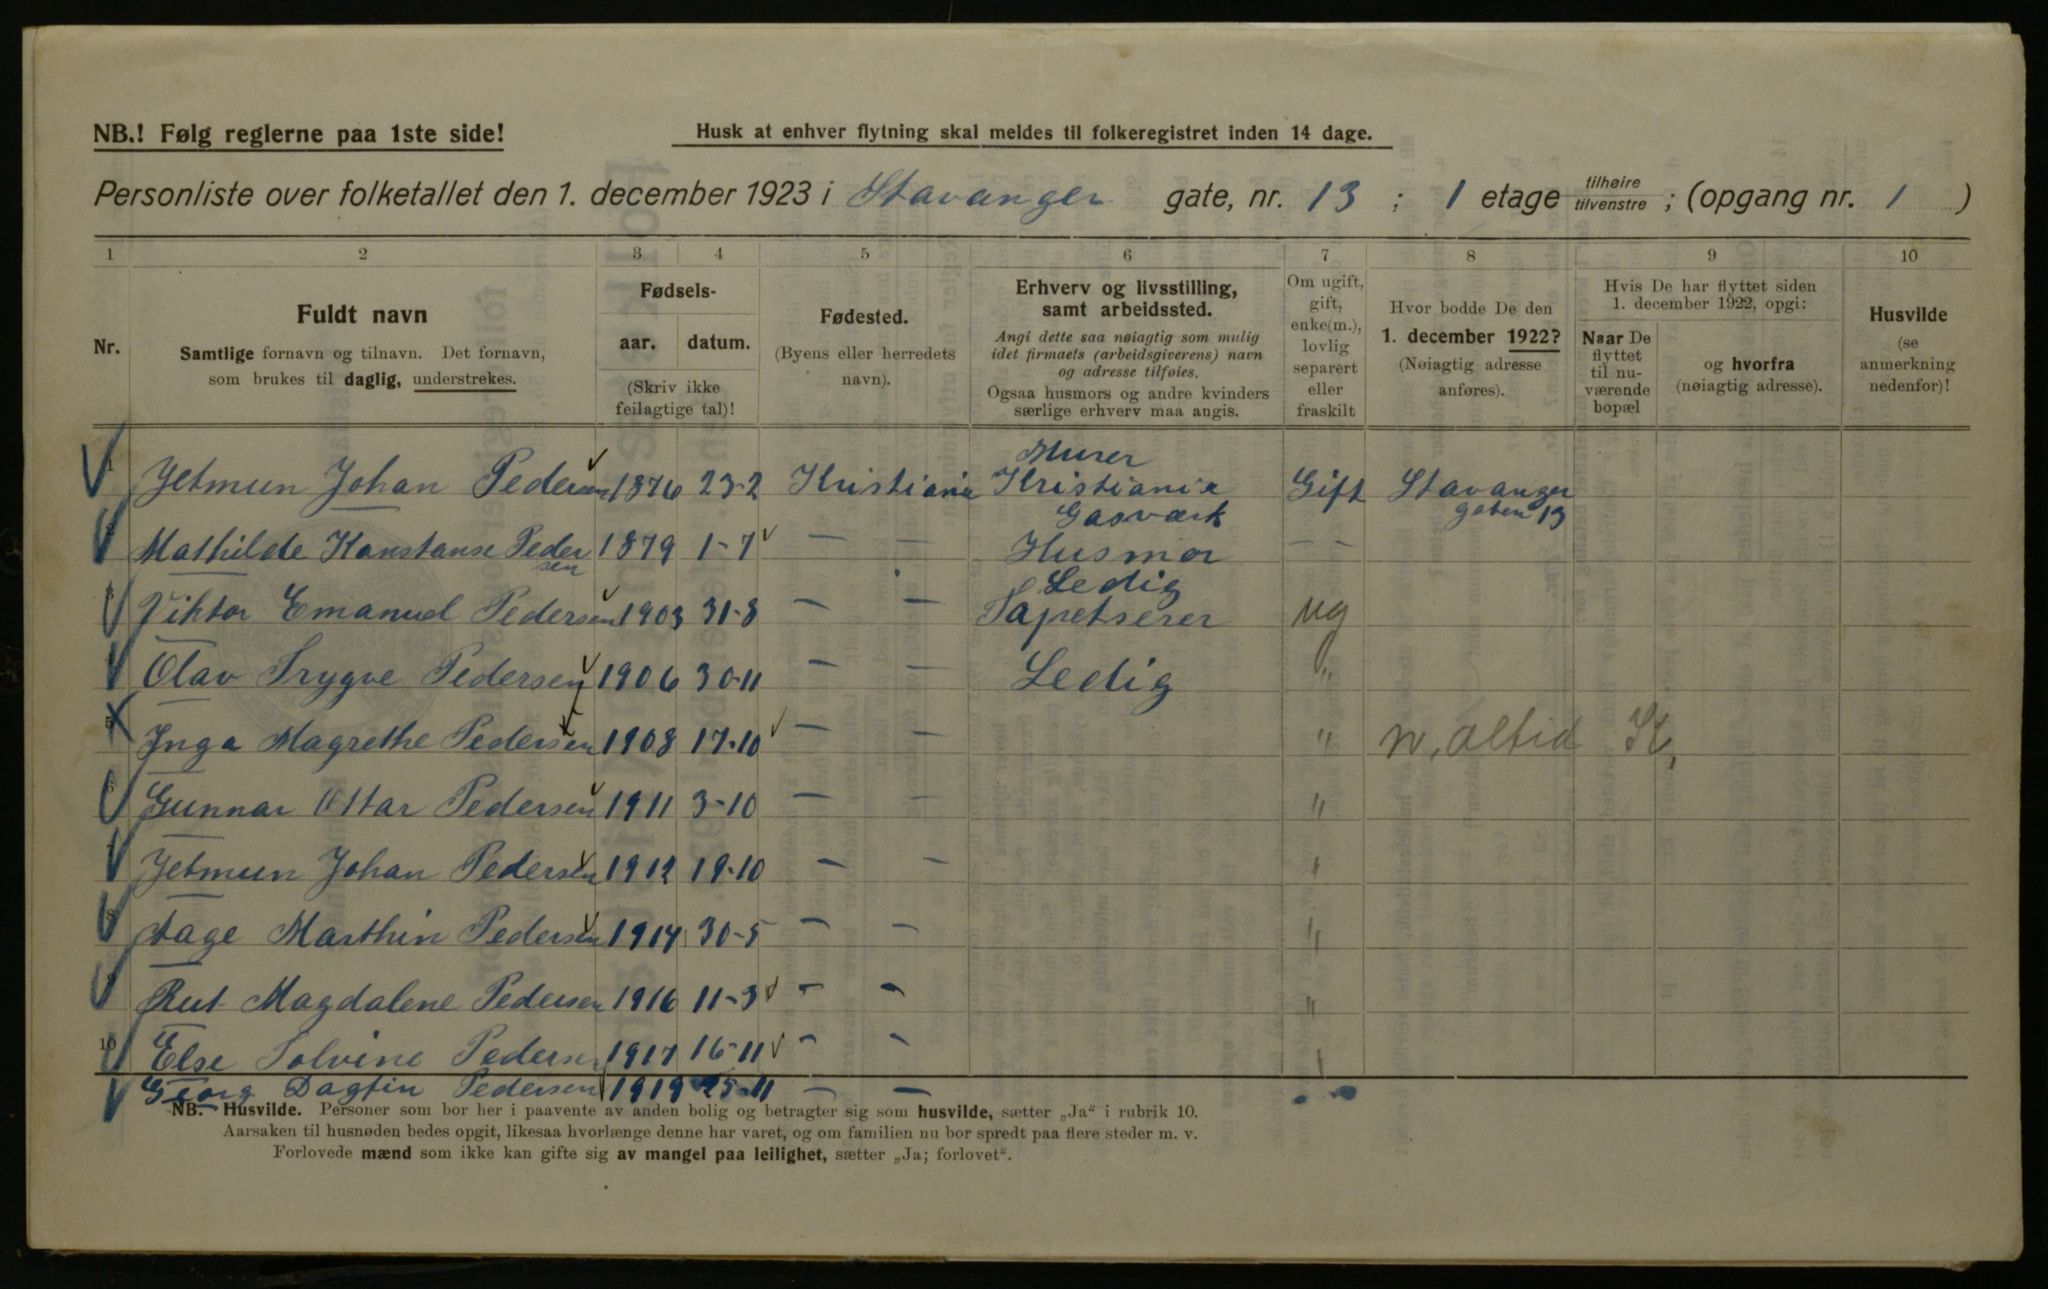 NB.! Følg reglerne paa 1ste side!
Husk at enhver flytning skal meldes til folkeregistret inden 14 dage.
Personliste over folketallet den 1. december 1923 i Stavanger gate, nr. 13 ; 1 etage tilhøire tilvenstre ; (opgang nr. 1 )
1 2 3 4 5 6 7 8 9 10
Nr.
Fuldt navn
Samtlige fornavn og tilnavn. Det fornavn,
som brukes til daglig, understrekes.
Fødsels-
aar. datum.
(Skriv ikke
feilagtige tal)!
Fødested.
(Byens eller herredets
navn).
Erhverv og livsstilling,
samt arbeidssted.
Angi dette saa nøiagtig som mulig
idet firmaets (arbeidsgiverens) navn
og adresse tilføies.
Ogsaa husmors og andre kvinders
særlige erhverv maa angis.
Om ugift,
gift,
enke(m.),
lovlig
separert
eller
fraskilt
Hvor bodde De den
1. december 1922?
(Nøiagtig adresse
anføres).
Hvis De har flyttet siden
1. december 1922, opgi:
Naar De
flyttet
til nu-
værende
bopæl
og hvorfra
(nøiagtig adresse).
Husvilde
(se
anmerkning
nedenfor)!
1 Jetmun Johan Pedersen 1876 23-2 Kristiania Murer Kristiania Gasværk Gift Stavanger gaten 13
Mathilde Konstanse Pedersen 1879 1-7 — — Husmor — —
3 Viktor Emanuel Pedersen 1903 31-8 — — Ledig Tapetserer ug
Olav Trygve Pedersen 1906 30-11 — — Ledig "
5 Inga Magrethe Pedersen 1908 17-10 — — " n, altid K,
6 Gunnar Ottar Pedersen 1911 3-10 — — "
Jetmun Johan Pedersen 1912 19-10 — — "
8 Aage Marthin Pedersen 1914 30-5 — — "
9 Rut Magdalene Pedersen 1916 11-3 — — "
10 Else Solvine Pedersen 1917 16-11 — — "
Georg Dagfin Pedersen 1919 25-11 — — "
NB. Husvilde. Personer som bor her i paavente av anden bolig og betragter sig som husvilde, sætter „Ja“ i rubrik 10.
Aarsaken til husnøden bedes opgit, likesaa hvorlænge denne har varet, og om familien nu bor spredt paa flere steder m. v.
Forlovede mænd som ikke kan gifte sig av mangel paa leilighet, sætter „Ja; forlovet“.